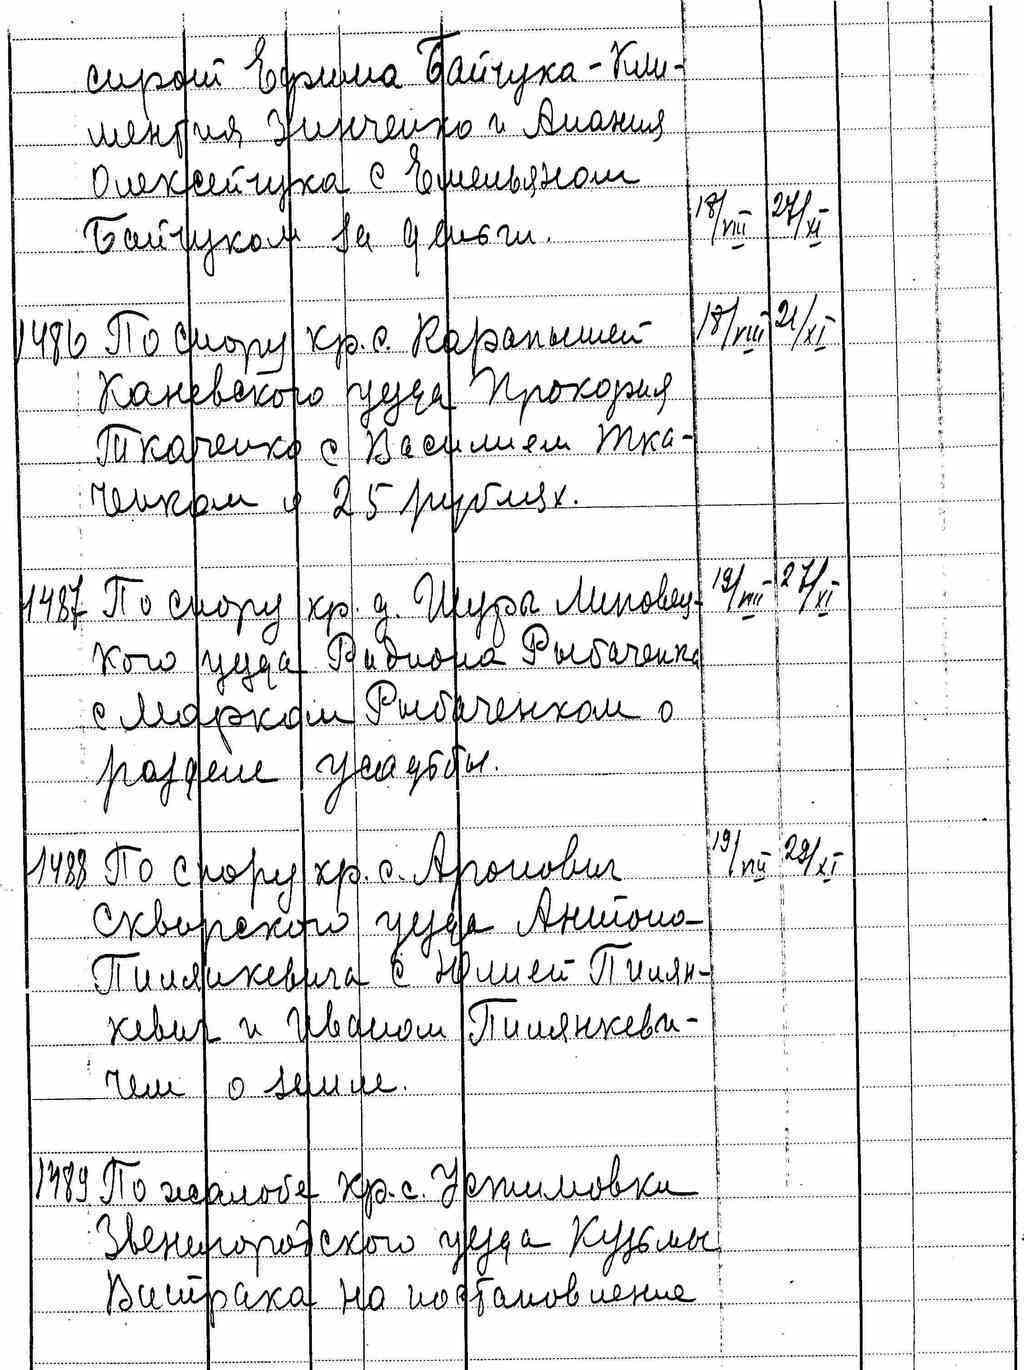 сирот Ефима Байчука - Кли-
ментия Зинченко и Анания
Олексейчука с Емельяном
Байчуком за деньги. 18/VIII 27/XI
1486 По спору кр. с. Карапышей 18/VIII 21/XI
Каневского уезда Прокория
Ткаченко с Василием Тка-
ченком о 25 рублях.
1487 По спору кр. д. Шуры Липовец- 19/VIII 27/XI
кого уезда Радиона Рыбаченка
с Марком Рыбаченком о
разделе усадьбы.
1488 По спору кр. с. Агронович 19/VIII 29/XI
Сквирского уезда Антона
Пилянкевича с Юлией Пилян-
кевич и Иваном Пилянкеви-
чем о земле.
1489 По жалобе кр. с. Устимовки
Звенигородского уезда Кузьмы
на постановление